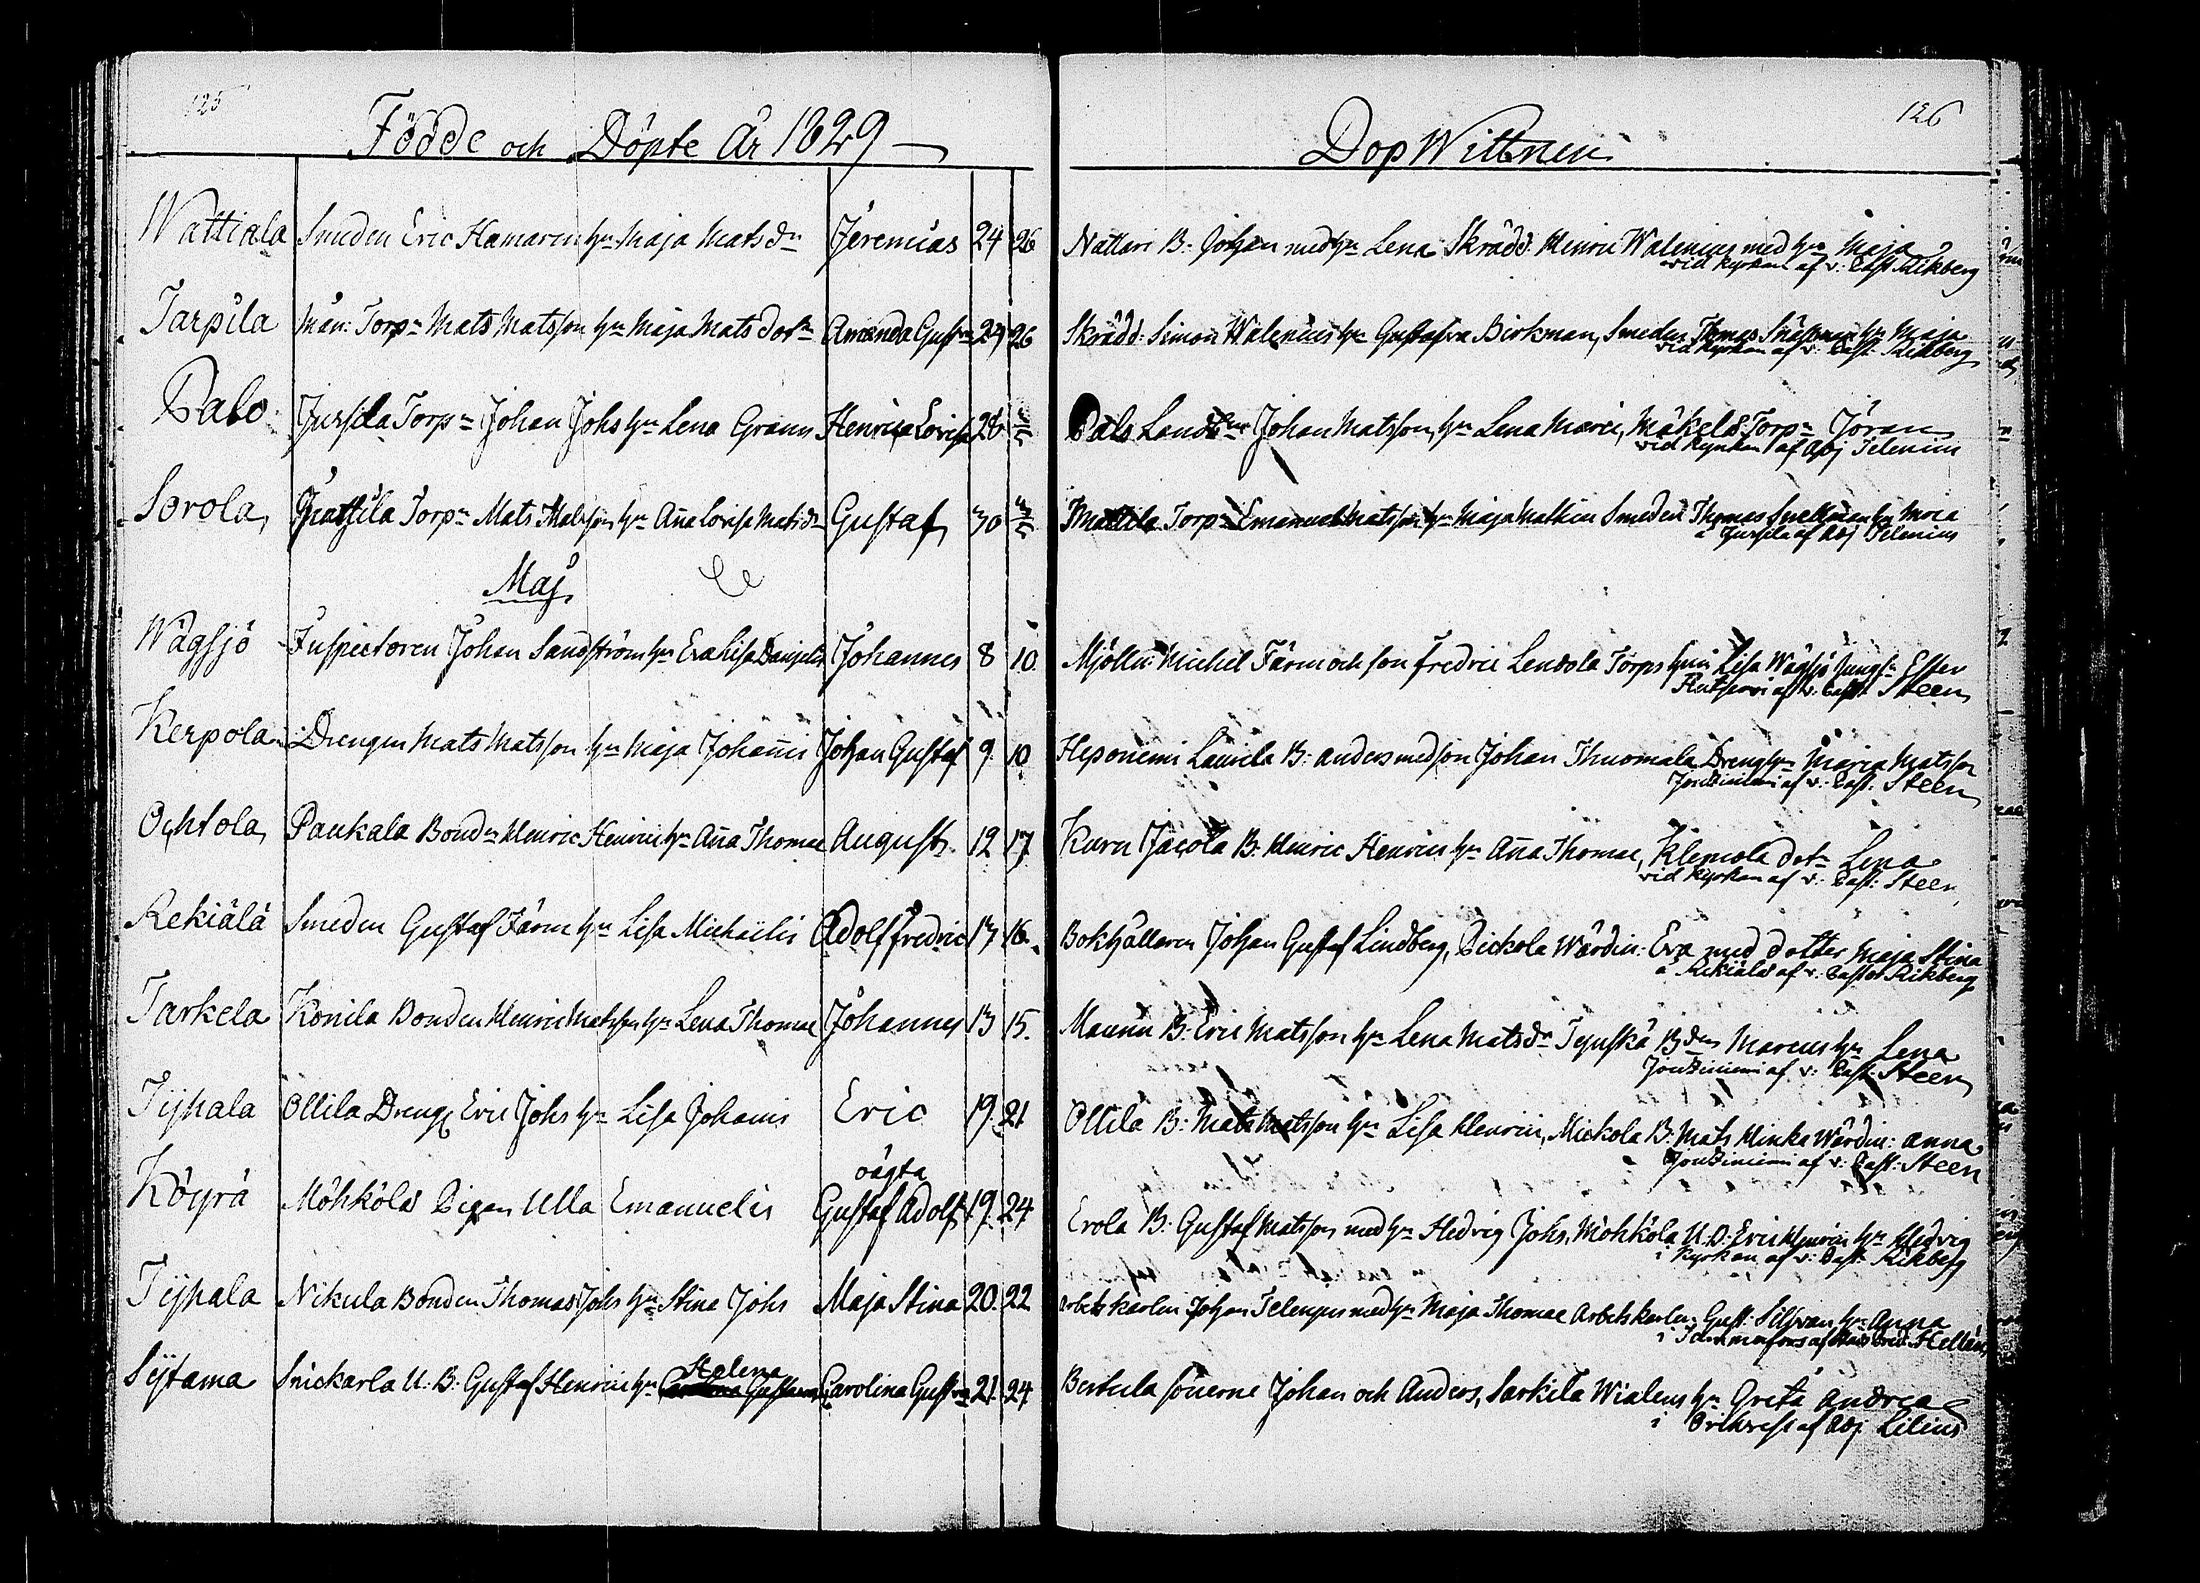 125
Födde och Döpte År 1829
Wattiala Smeden Eric Hamarin hu Maja Mats dr Jeremias 24 26
Tarpila Mån: Torp: Mats Matsson hu Maja Mats dotr Amanda Gustva 24 26
Palo Jursila Torp: Johan Johs hu Lena Grann Henrica Lovisa 28 3/5
Sorola Torp: Mats hu Aña Lovisa Mats dr Gustaf 30 3/5
Maj
Wägsjö Inspectoren Johan Sandström hu Eva Lisa Danjelis Johannes 8 10
Kerpola Drengen Mats Matsson hu Maja Johañis Johan Gustaf 9 10
Ochtola Paukala Bond: Henric Henrici hu Aña Thomae August 12 17
Rekiälä Smeden Gustaf Färm hu Lisa Michaelis Adolf Fredric 13 16
Tarkela Konila Bonden Henric Matsson hu Lena Thomae Johannes 13 15
Tijhala Ollila Dreng Eric Johs hu Lisa Johanis Eric 19 21
oägta
Köyrä Möhkölä Pigan Ulla Emanuelis Gustaf Adolf 19 24
Tijhala Nikula Bonden Thomas Johs hu Stina Johs Maja Stina 20 22
Helena
Sytama Snickarla U. B: Gustaf Henrici hu Carolina Gustva 21 24
126
Dop Wittnen
Nattari B: Johan med hu Lena Skrädd: Henric Walenius med hu Maja
vid kyrkan af v: Past: Rikberg
Skrädd: Simon Walenius hu Gustafva Birkman, Smeden Thomas hu Maja
vid kyrkan af v: Past: Rikberg
Pals Johan Matsson, hu Lena Marci, Mäkelä Torp: Jöran
vid Kyrkan af Adj Telenius
Mattila Torp: Emanuel Matsson hu Maja Smeden Thomas Snellman hu Maia
i Jursila af Adj Telenius
Mjölln: Michel Färm och son Fredric Lensola Torps hu Lisa Wägsjö Jungfr Ester
af v: Past: Steen
Heponiemi Laurila B: Anders med son Johan Thuomala Dreng hu Maria Matsson
Joutsiniemi af v: Past: Steen
Kuru Jacola B: Henric Henrici hu Aña Thomae, Klemola dotr Lena
vid Kyrkan af v: Past: Steen
Bokhållaren Johan Gustaf Lindberg, Pickola Wärdin: Eva med dotter Maja Stina
å Rekiälä af v: Pastor Rikberg
Maunu B: Eric Matsson hu Lena Mats dr Tynskä Bden Marcus hu Lena
Joutsiniemi af v: Past: Steen
Ollila B: Mats Matsson hu Lisa Henrici, Mickola B: Mats Hinka Wärdin: Anna
Joutsiniemi af v: Past: Steen
Erola B: Gustaf Matsson med hu Hedvig Johs, Möhkölä U. B: Eric Henrici hu Hedvig
i Kyrkan af v: Past: Rikberg
Arbets karlen Johan Telenius med hu Maja Thomae Arbets karlen Gust: Silfvan hu Anna
i Tammerfors af Hellén
Bertula sönerne Johan och Anders, Sarkila Wialens hu Greta Andrea
i Orihvesi af Adj Lilius